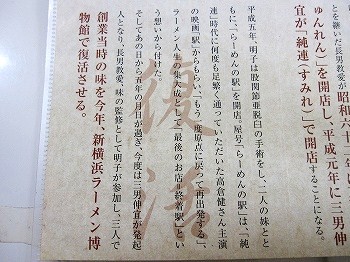 とを継いだ長男教愛が昭和六十二年に
ゅんれん）」を開店し、平成元年に三男伸
宜が「純連（すみれ）」で開店することになる。
平成五年、明子は股関節亜脱臼の手術をし、二人の妹とと
もに、「らーめんの駅」を開店。屋号「らーめんの駅」は、「純
連」時代に何度も足繁く通っていただいた高倉健さん主演
の映画「駅」からもらい、「もう一度原点に戻って再出発する」、
ラーメン人生の集大成として「最後のお店＝終着駅」とい
う想いから付けた。
そしてあの日から六年の月日が過ぎ、今度は三男伸宜が発起
人となり、長男教愛、味の監修として明子が参加し、三人で
創業当時の味を今年、新横浜ラーメン博
物館で復活させる。
復活